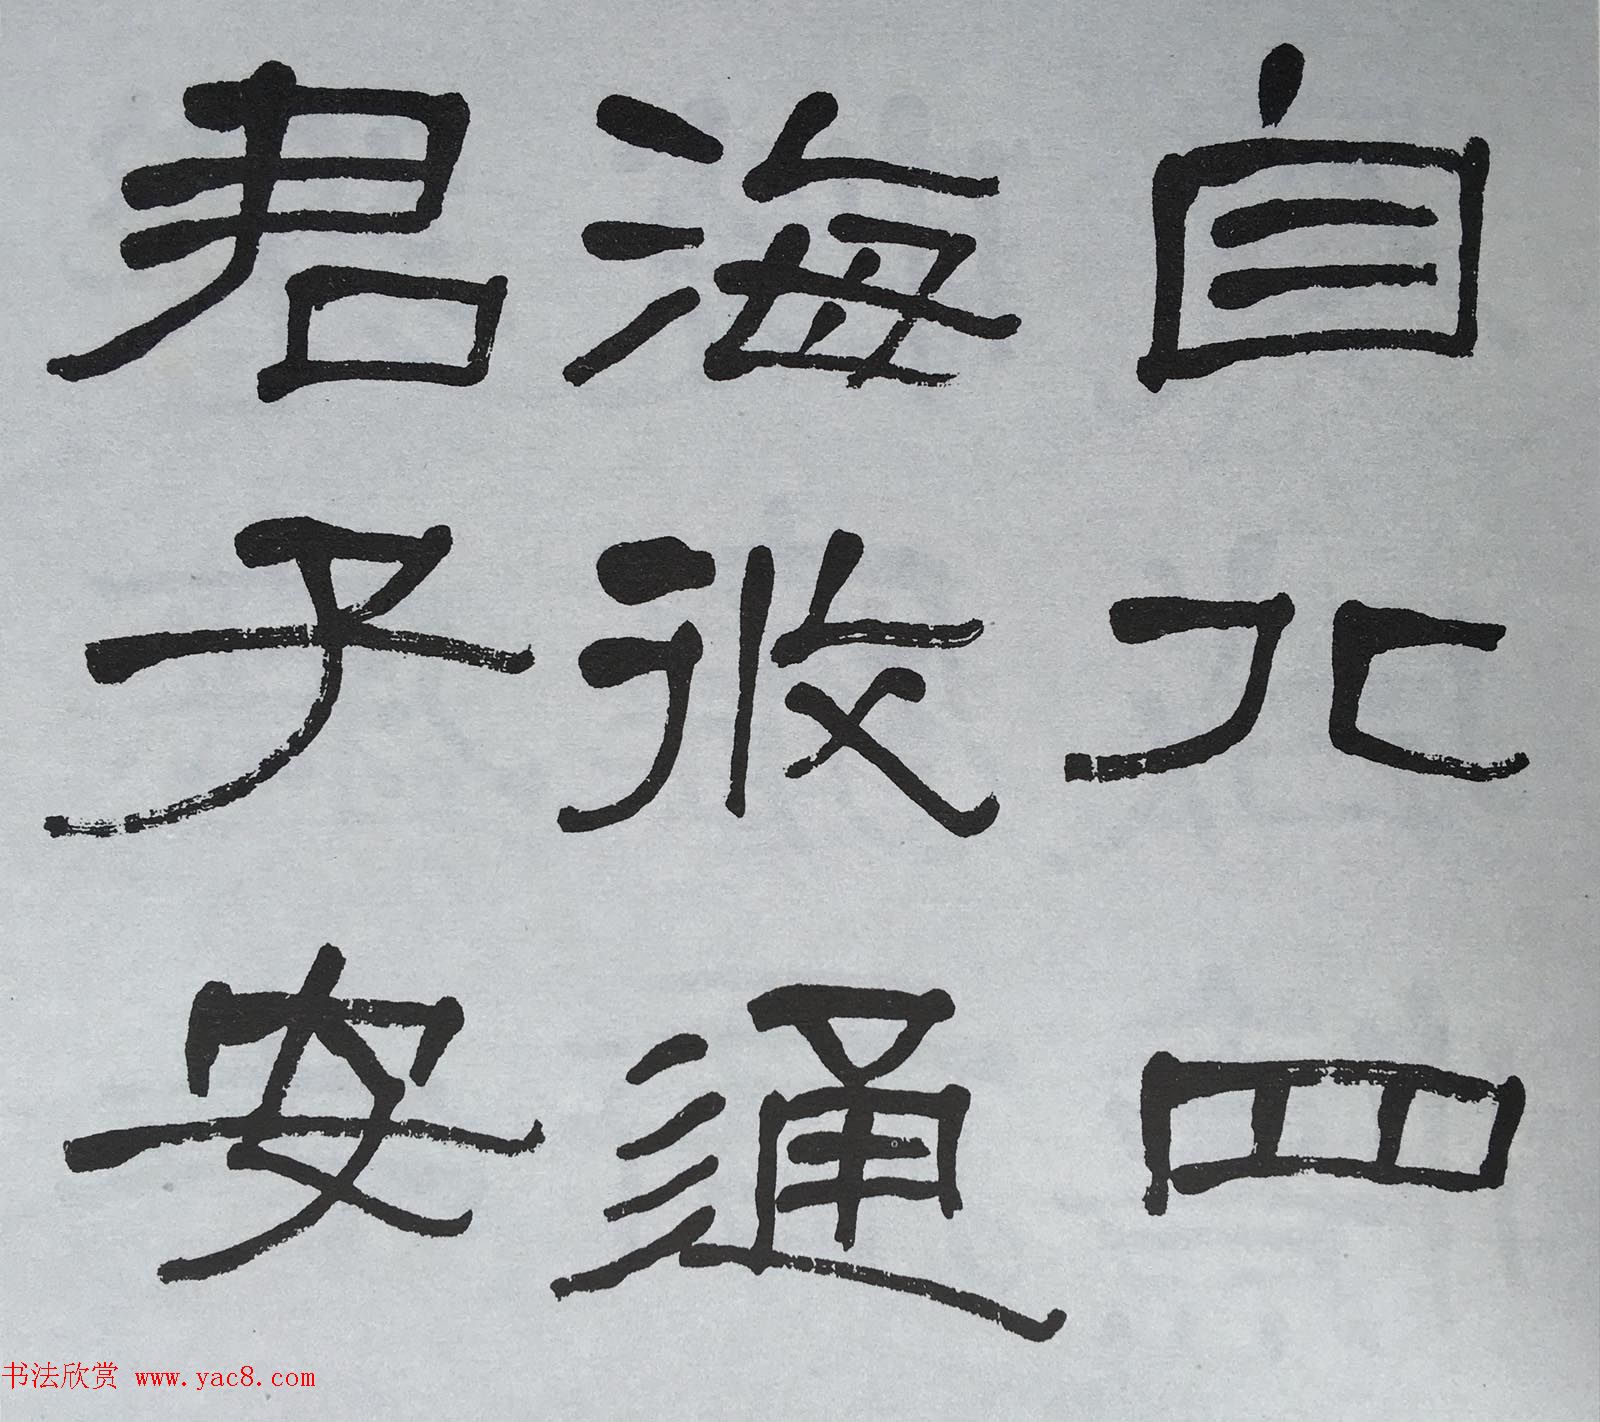 自北四
海攸通
君子安
书法欣赏 www.yac8.com